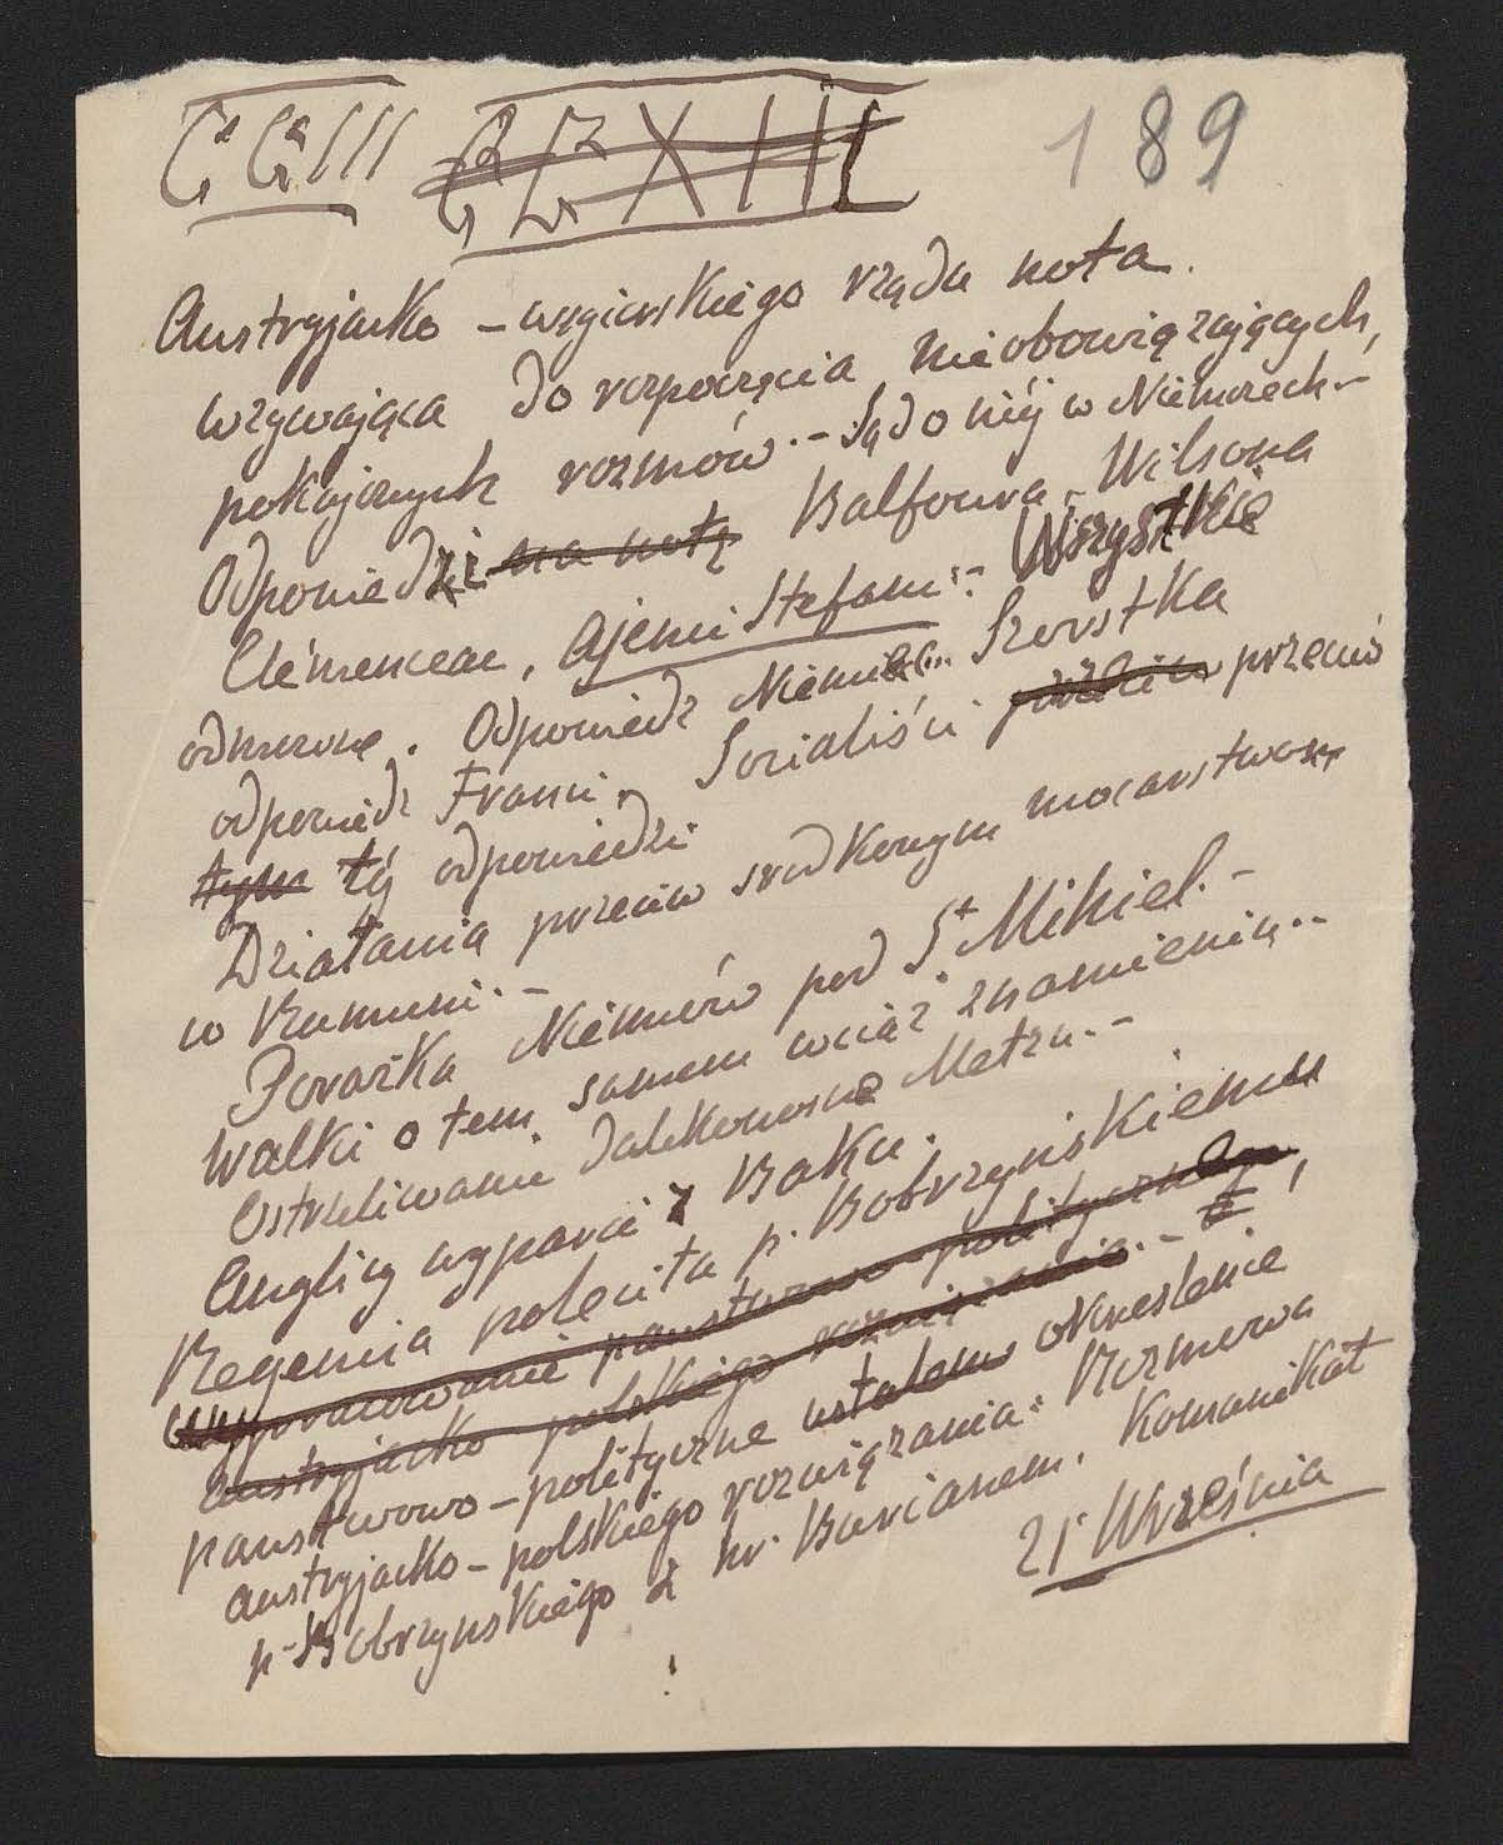 CCIII CLXIII 189
Austryjacko - węgierskiego rządu nota.
wzywająca do rozpoczęcia nieobowiązujących,
pokojowych rozmów.- Sąd o niéj w Niemczech.-
Odpowiedzi na notę Balfoura, Wilsona
Clémenceau, Ajencji Stefani.- Wszystkie
odmowne. Odpowiedź Niemiec.. Szorstka
odpowiedź Francji. Socialiści przeciw
tym téj odpowiedzi
Działania przeciw środkowym mocarstwom
w Rumunii.-
Porażka Niemców pod St Mihiel.-
Walki o tem samem wciąż znamieniu..
Ostrzeliwanie dalekonośne Metzu.-
Anglicy wyparci z Baku.
Regencia poleciła p. Bobrzyńskiemu
wypracowanie państwowo politycznego,
austryjacko polskiego rozwiązania.-
państwowo-polityczne ustalenie określenie
austryjacko-polskiego rozwiązania. Rozmowa
p. Bobrzyńskiego z hr. Burianem. Komunikat
21 Września